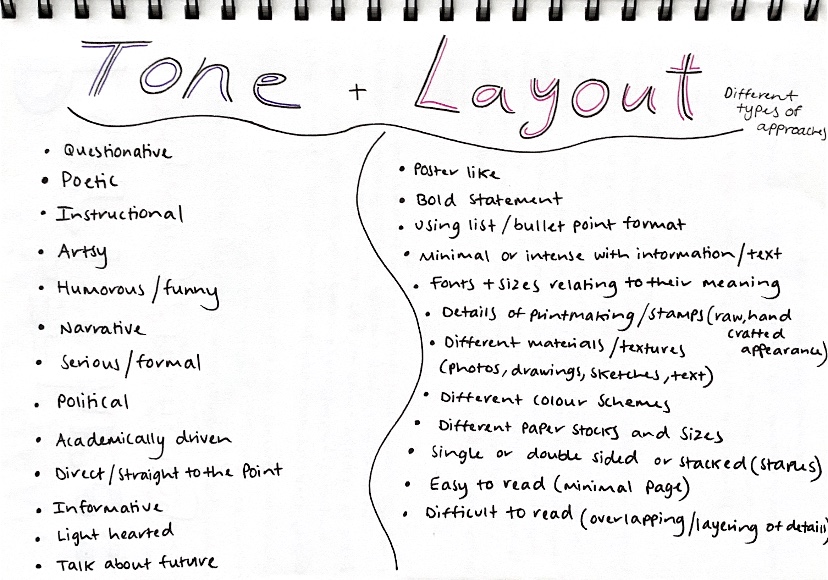 Tone + Layout
Different
types of
approaches
• Questionative
• Poetic
• Instructional
• Artsy
• Humorous/funny
• Narrative
• Serious/formal
• Political
• Academically driven
• Direct/straight to the point
• Informative
• Light hearted
• Talk about future
• Poster like
• Bold statement
• using list/bullet point format
• Minimal or intense with information/text
• Fonts + sizes relating to their meaning
• Details of printmaking/stamps (raw, hand
crafted
appearance)
• Different materials/textures
(photos, drawings, sketches, text)
• Different colour schemes
• Different paper stocks and sizes
• Single or double sided or stacked (staples)
• Easy to read (minimal page)
• Difficult to read (overlapping/layering of details)